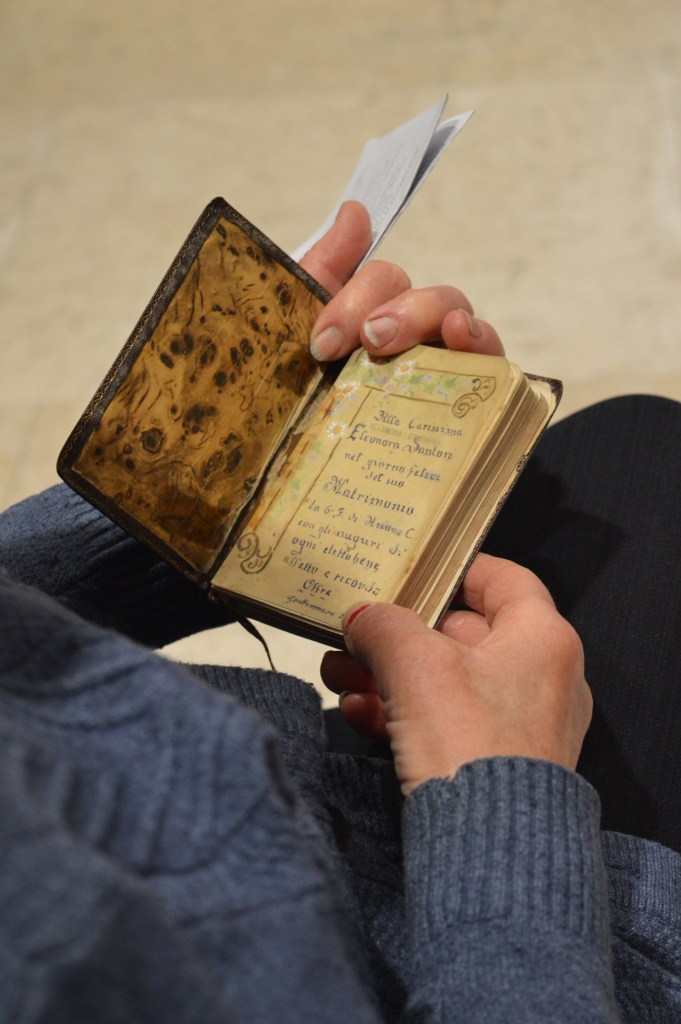 Alla Carissima
Eleonora Santori
nel giorno felice
del suo
Matrimonio
la G. F. di C.
con gli auguri di
ogni eletto bene
affetto e ricordo
Offre